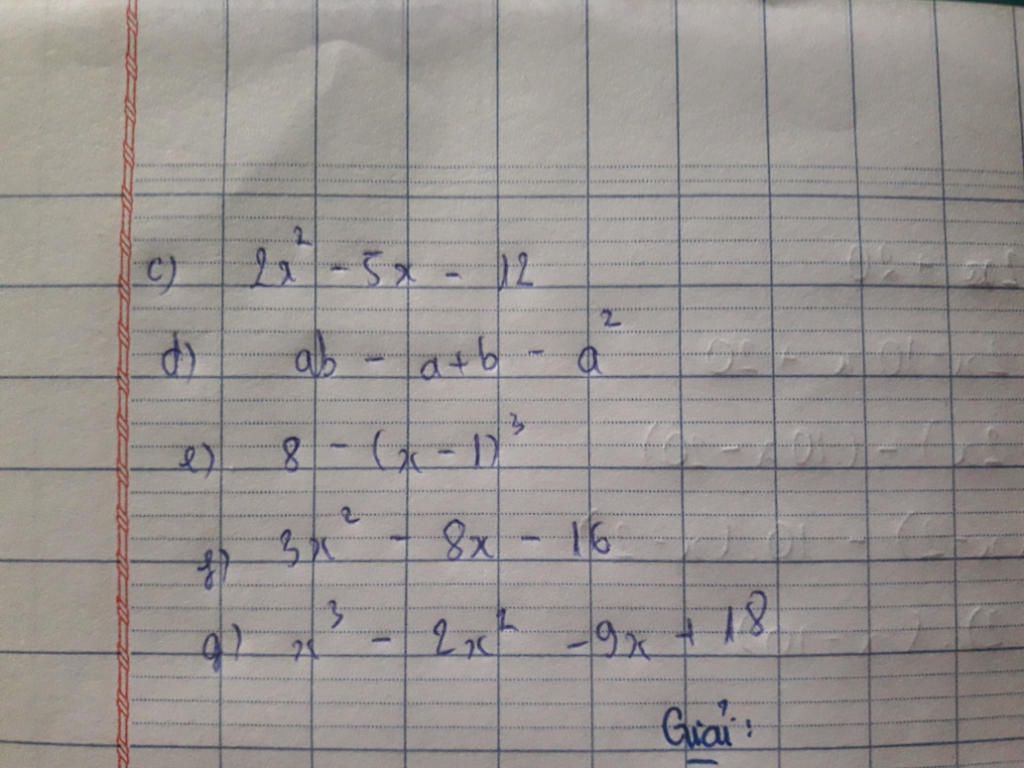 c) 2x² - 5x - 12
d) ab - a + b - a²
e) 8 - (x - 1)³
f) 3x² - 8x - 16
g) x³ - 2x² - 9x + 18
Giải: